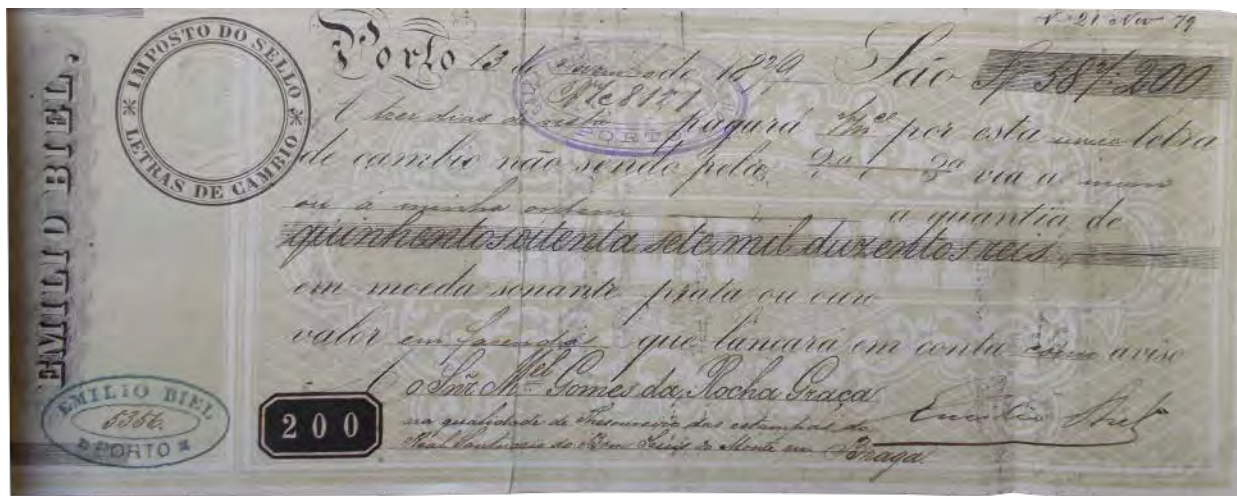 EMILIO BIEL.
IMPOSTO DO SELLO
LETRAS DE CAMBIO
21 Nov 79
Porto 13 de de 1879 São 587:200
Nº 8127
PORTO
A trez dias de vista pagará por esta unica letra
de cambio não sendo pela via a mim
ou á minha ordem a quantia de
quinhentos oitenta sete mil duzentos reis
em moeda sonante prata ou ouro
valor em fasendas que lancará em conta como aviso
o Snr. Mel Gomes da Rocha Graça
na qualidade de Thesoureiro das estampas do
Real Santuario do Bom Jesus do Monte em Braga.
Emilio Biel
200
EMILIO BIEL
5356.
PORTO